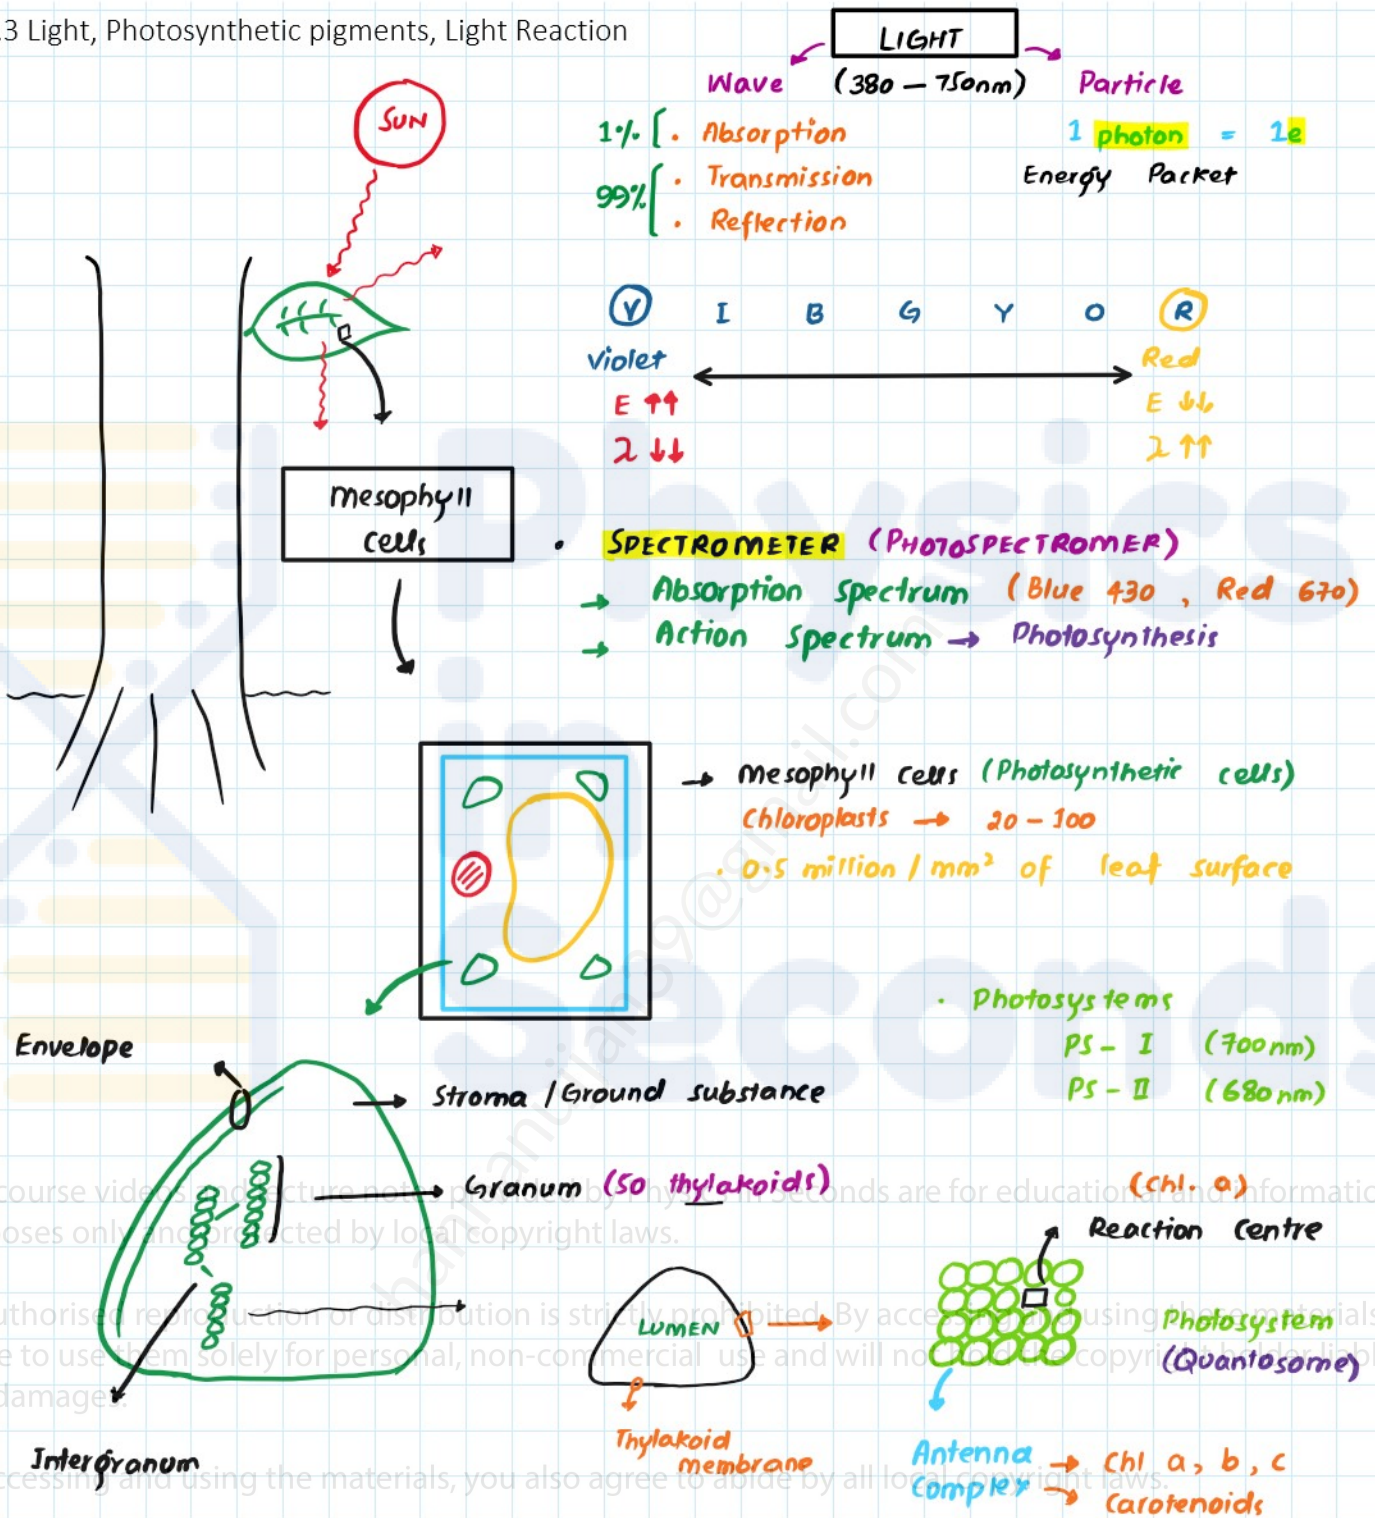 .3 Light, Photosynthetic pigments, Light Reaction
LIGHT
(380 – 750nm)
Wave
Particle
SUN
1% [ · Absorption
99% [ · Transmission
· Reflection
1 photon = 1e
Energy Packet
V I B G Y O R
Violet
Red
E ↑↑
E ↓↓
λ ↓↓
λ ↑↑
Mesophyll
cells
· SPECTROMETER (PHOTOSPECTROMER)
→ Absorption spectrum (Blue 430 , Red 670)
→ Action spectrum → Photosynthesis
→ Mesophyll cells (Photosynthetic cells)
Chloroplasts → 20 – 100
· 0.5 million / mm² of leaf surface
· Photosystems
PS – I (700nm)
PS – II (680nm)
Envelope
Stroma / Ground substance
Granum (50 thylakoids)
(Chl. a)
Reaction Centre
LUMEN
Photosystem
(Quantosome)
Thylakoid
membrane
Intergranum
Antenna
Complex
→ Chl a, b, c
→ Carotenoids
Physics
in
Seconds
course
conds are for education
nformatic
oses only and protected by local copyright laws.
uthorised reproduction or distribution is strictly prohibited. By
using these materials
e to use them solely for personal, non-commercial use and will no
copyri
damages.
ccessing and using the materials, you also agree to abide by all local copyright laws.